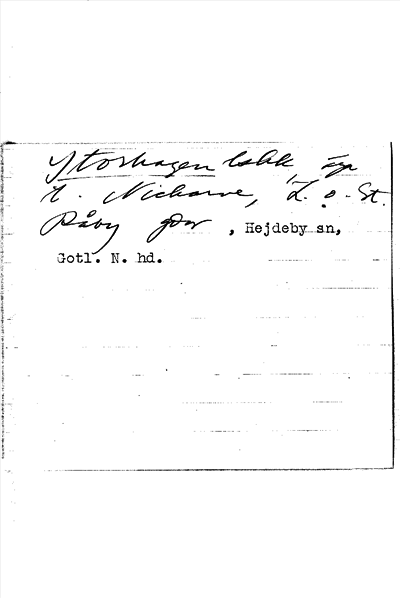 Storhagen lskk, äga
t. Nickarve, L. o. St.
Råby gdar, Hejdeby sn,
Gotl. N. hd.